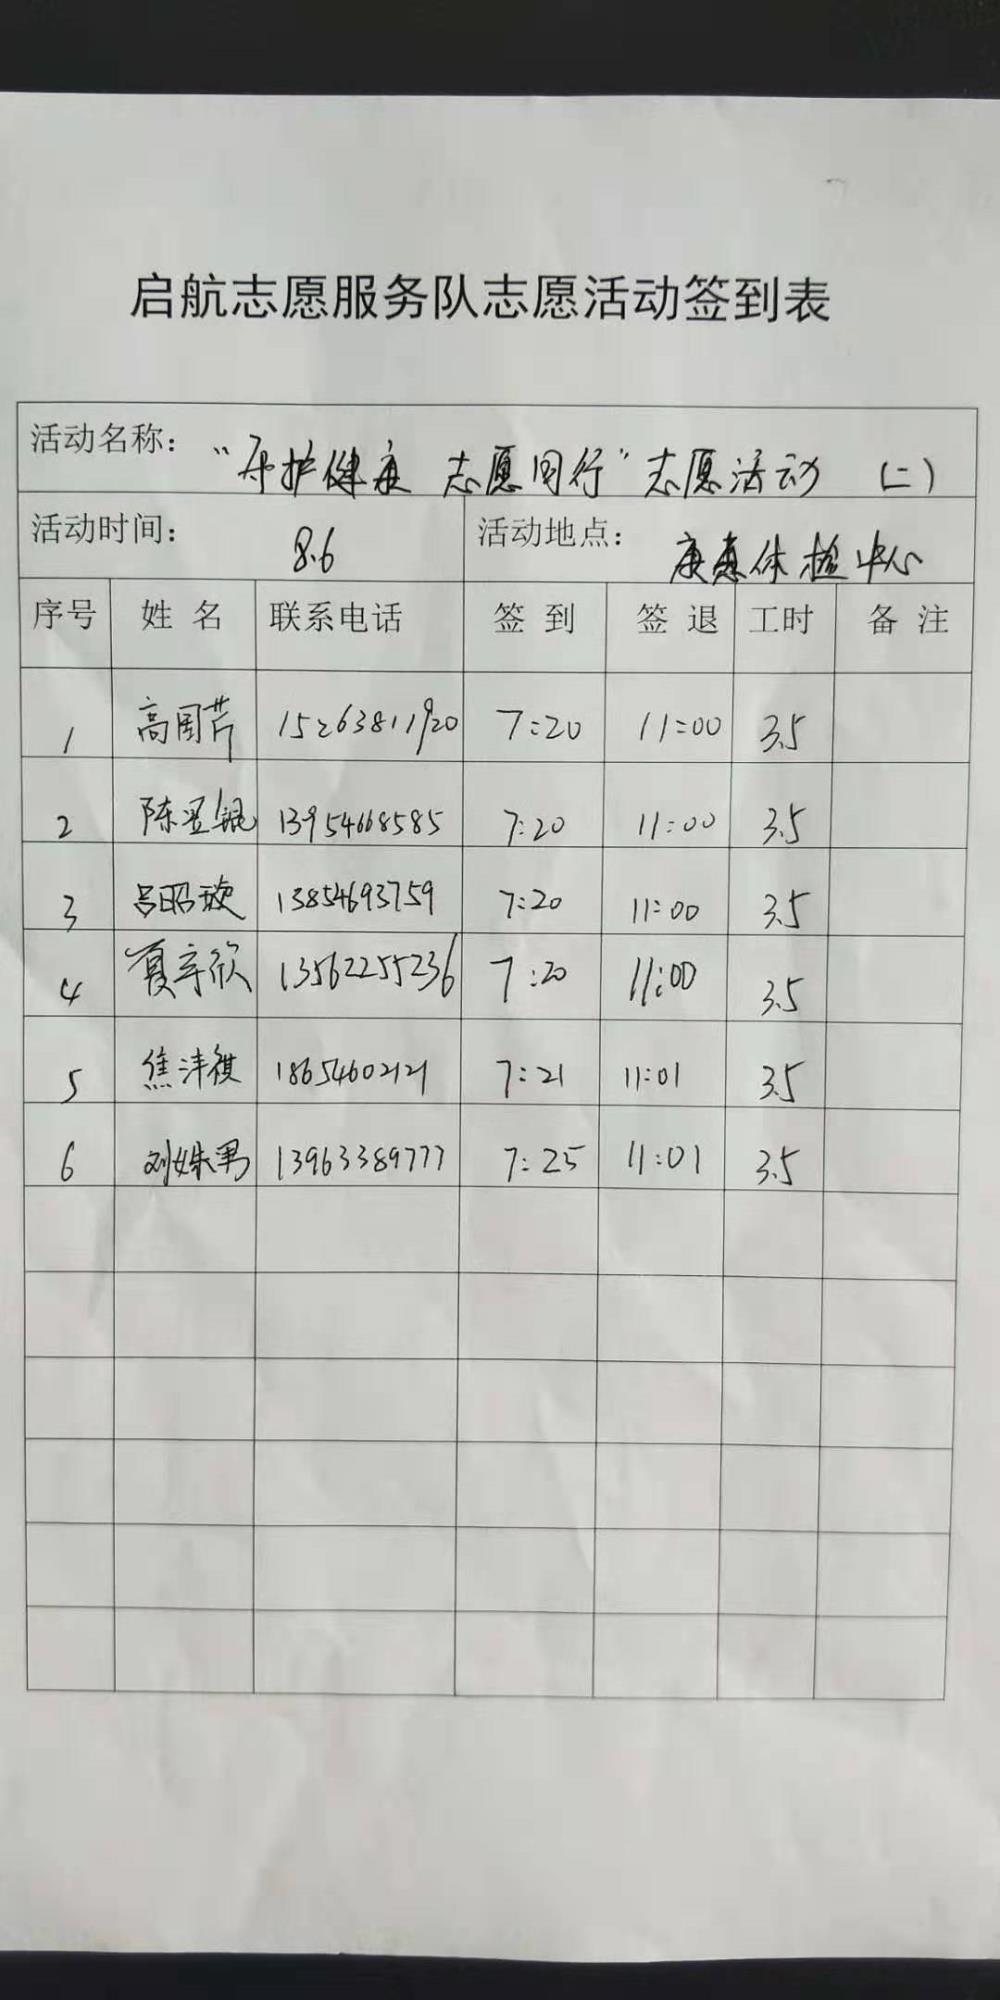 启航志愿服务队志愿活动签到表
活动名称： “守护健康 志愿同行”志愿活动 （二）
活动时间： 8.6 活动地点： 康惠体检中心
序号 姓名 联系电话 签到 签退 工时 备注
1 高国芹 15263811920 7:20 11:00 3.5
2 陈翌锟 13954668585 7:20 11:00 3.5
3 吕昭璇 13854693759 7:20 11:00 3.5
4 夏辛欣 13562255236 7:20 11:00 3.5
5 焦沣祺 18654602121 7:21 11:01 3.5
6 刘姝男 13963389777 7:25 11:01 3.5